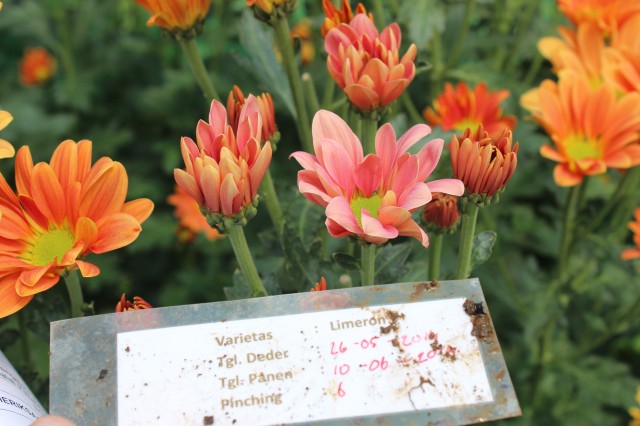 Varietas : Limeron
Tgl. Deder : 26-05-201
Tgl. Panen 10-06-20
Pinching 6